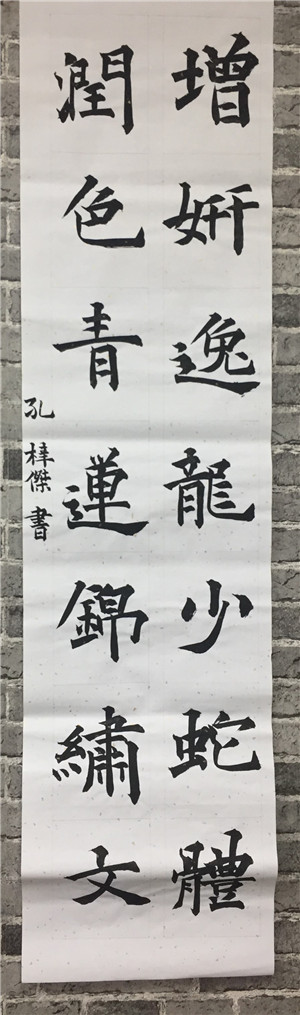 增妍逸龍少蛇體
潤色青蓮錦繡文
孔梓傑書